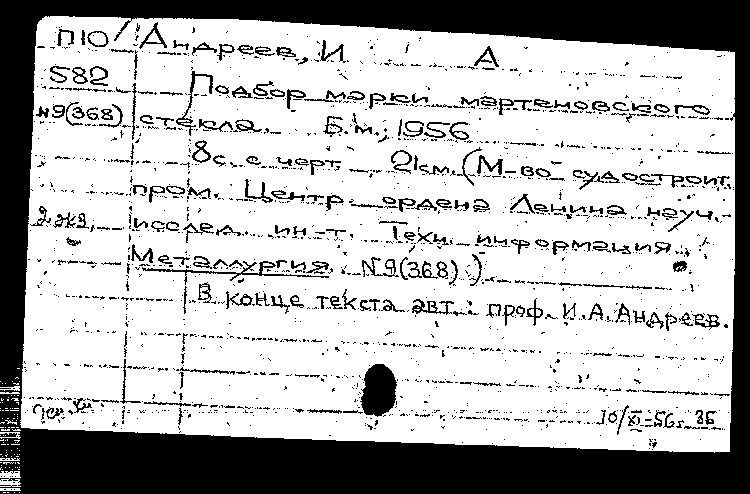 П10/ Андреев, И А
582 Подбор марки мартеновского
N9(368) стекла. Б.м., 1956
8с. с черт. 21см. (М-во судостроит.
пром. Центр. ордена Ленина науч.-
2 экз. исслед. ин-т. Техн. информация.
Металлургия. N9(368).)
В конце текста авт.: проф. И.А.Андреев.
10/XI-56г.